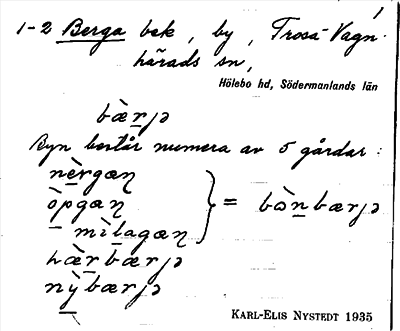 1-2 Berga bek, by, Trosa-Vagn-
härads sn,
Hölebo hd, Södermanlands län
bæ̀rjə
Byn består numera av 5 gårdar:
nèrgæɳ
òpgæɳ } = bòn bærjə
mìlagæɳ
hæ̀rbærjə
nỳbærjə
KARL-ELIS NYSTEDT 1935